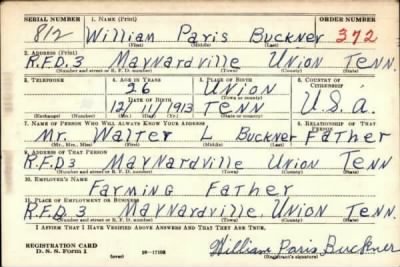 SERIAL NUMBER 1. NAME (Print) ORDER NUMBER
812 William Paris Buckner 372
(First) (Middle) (Last)
2. ADDRESS (Print)
R.F.D. 3 Maynardville Union Tenn
(Number and street or R. F. D. number) (Town) (County) (State)
3. TELEPHONE 4. AGE IN YEARS 5. PLACE OF BIRTH 6. COUNTRY OF CITIZENSHIP
26 Union
DATE OF BIRTH (Town or county)
12/11/1913 Tenn U.S.A.
(Exchange) (Number) (Mo.) (Day) (Yr.) (State or country)
7. NAME OF PERSON WHO WILL ALWAYS KNOW YOUR ADDRESS 8. RELATIONSHIP OF THAT PERSON
Mr. Walter L Buckner Father
(Mr., Mrs., Miss) (First) (Middle) (Last)
9. ADDRESS OF THAT PERSON
R.F.D3 Maynardville Union Tenn
(Number and street or R. F. D. number) (Town) (County) (State)
10. EMPLOYER'S NAME
Farming Father
11. PLACE OF EMPLOYMENT OR BUSINESS
R.F.D.3 Maynardville, Union Tenn.
(Number and street or R. F. D. number) (Town) (County) (State)
I AFFIRM THAT I HAVE VERIFIED ABOVE ANSWERS AND THAT THEY ARE TRUE.
REGISTRATION CARD
D. S. S. Form 1 (over) William Paris Buckner
(Registrant's signature)